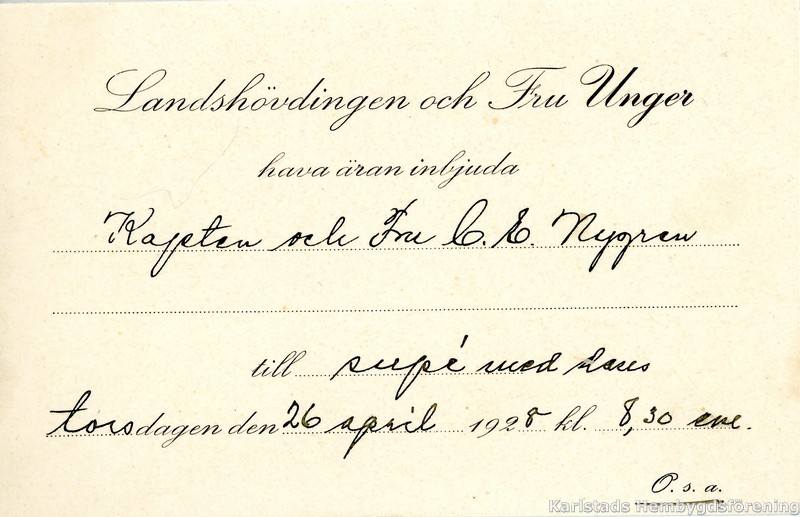 Landshövdingen och Fru Unger
hava äran inbjuda
Kapten och Fru C. E. Nygren
till supé med dans
torsdagen den 26 april 1928 kl. 8,30 em.
O. s. a.
Karlstads Hembygdsförening